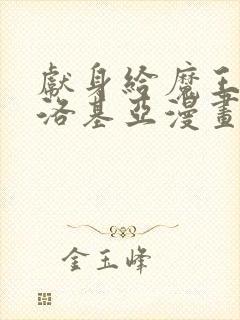 獻身給魔王
洛基亞漫畫
金玉峰